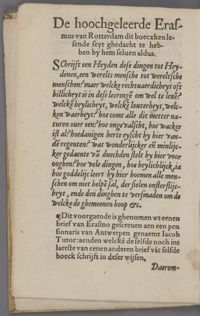 De hoochgeleerde Eras-
mus van Rotterdam dit boecxken le-
sende seyt ghedacht te heb-
ben by hem seluen aldus.
Schrijft een Heyden dese dingen tot Hey-
denen, een werelts mensche tot wereltsche
menschen? maer welcke rechtuaerdicheyt oft
billicheyt is in dese leeringe om wel te leuen?
welcke heylicheyt, welcke louterheyt, welc-
ken waerheyt? hoe comt alle dit metter na-
turen ouer een? hoe onghevalscht, hoe wacker
ist al? hoedanigen herte eyscht hy hier van
de regenten? wat wonderlijcker en minlijc-
ker gedaente der duechden stelt hy hier voor
ooghen? hoe vele dingen, hoe heylichlijck, ja
hoe goddelijc leert hy hier hoemen alle men-
schen om niet helpen sal, der sielen onsterflijc-
heyt, ende den dinghen te versmaden om de
welcke de ghemeenen hoop &c.
¶ Dit voorgaende is ghenomen wt eenen
brief van Erasmo gescreuen aen een pen
sionaris van Antwerpen genaemt Jacob
Tutor: aenden welcke de selfde noch int
laetste van eenen anderen brief vāt selfde
boeck schrijft in deser wijsen,
Daerom-